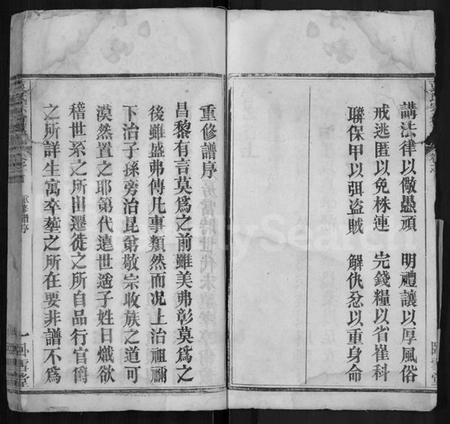 講法律以儆愚頑　明禮讓以厚風俗
戒逃匿以免株連　完錢糧以省催科
聯保甲以弭盜賊　解仇忿以重身命
重修譜序
昌黎有言莫爲之前雖美弗彰莫爲之
後雖盛弗傳凡事類然而况上治祖禰
下治子孫旁治昆弟敬宗收族之道可
漠然置之耶第代遠世遥子姓日熾欲
稽世系之所由遷徙之所自品行官階
之所詳生寓卒塟之所在要非譜不爲
重修譜序
一